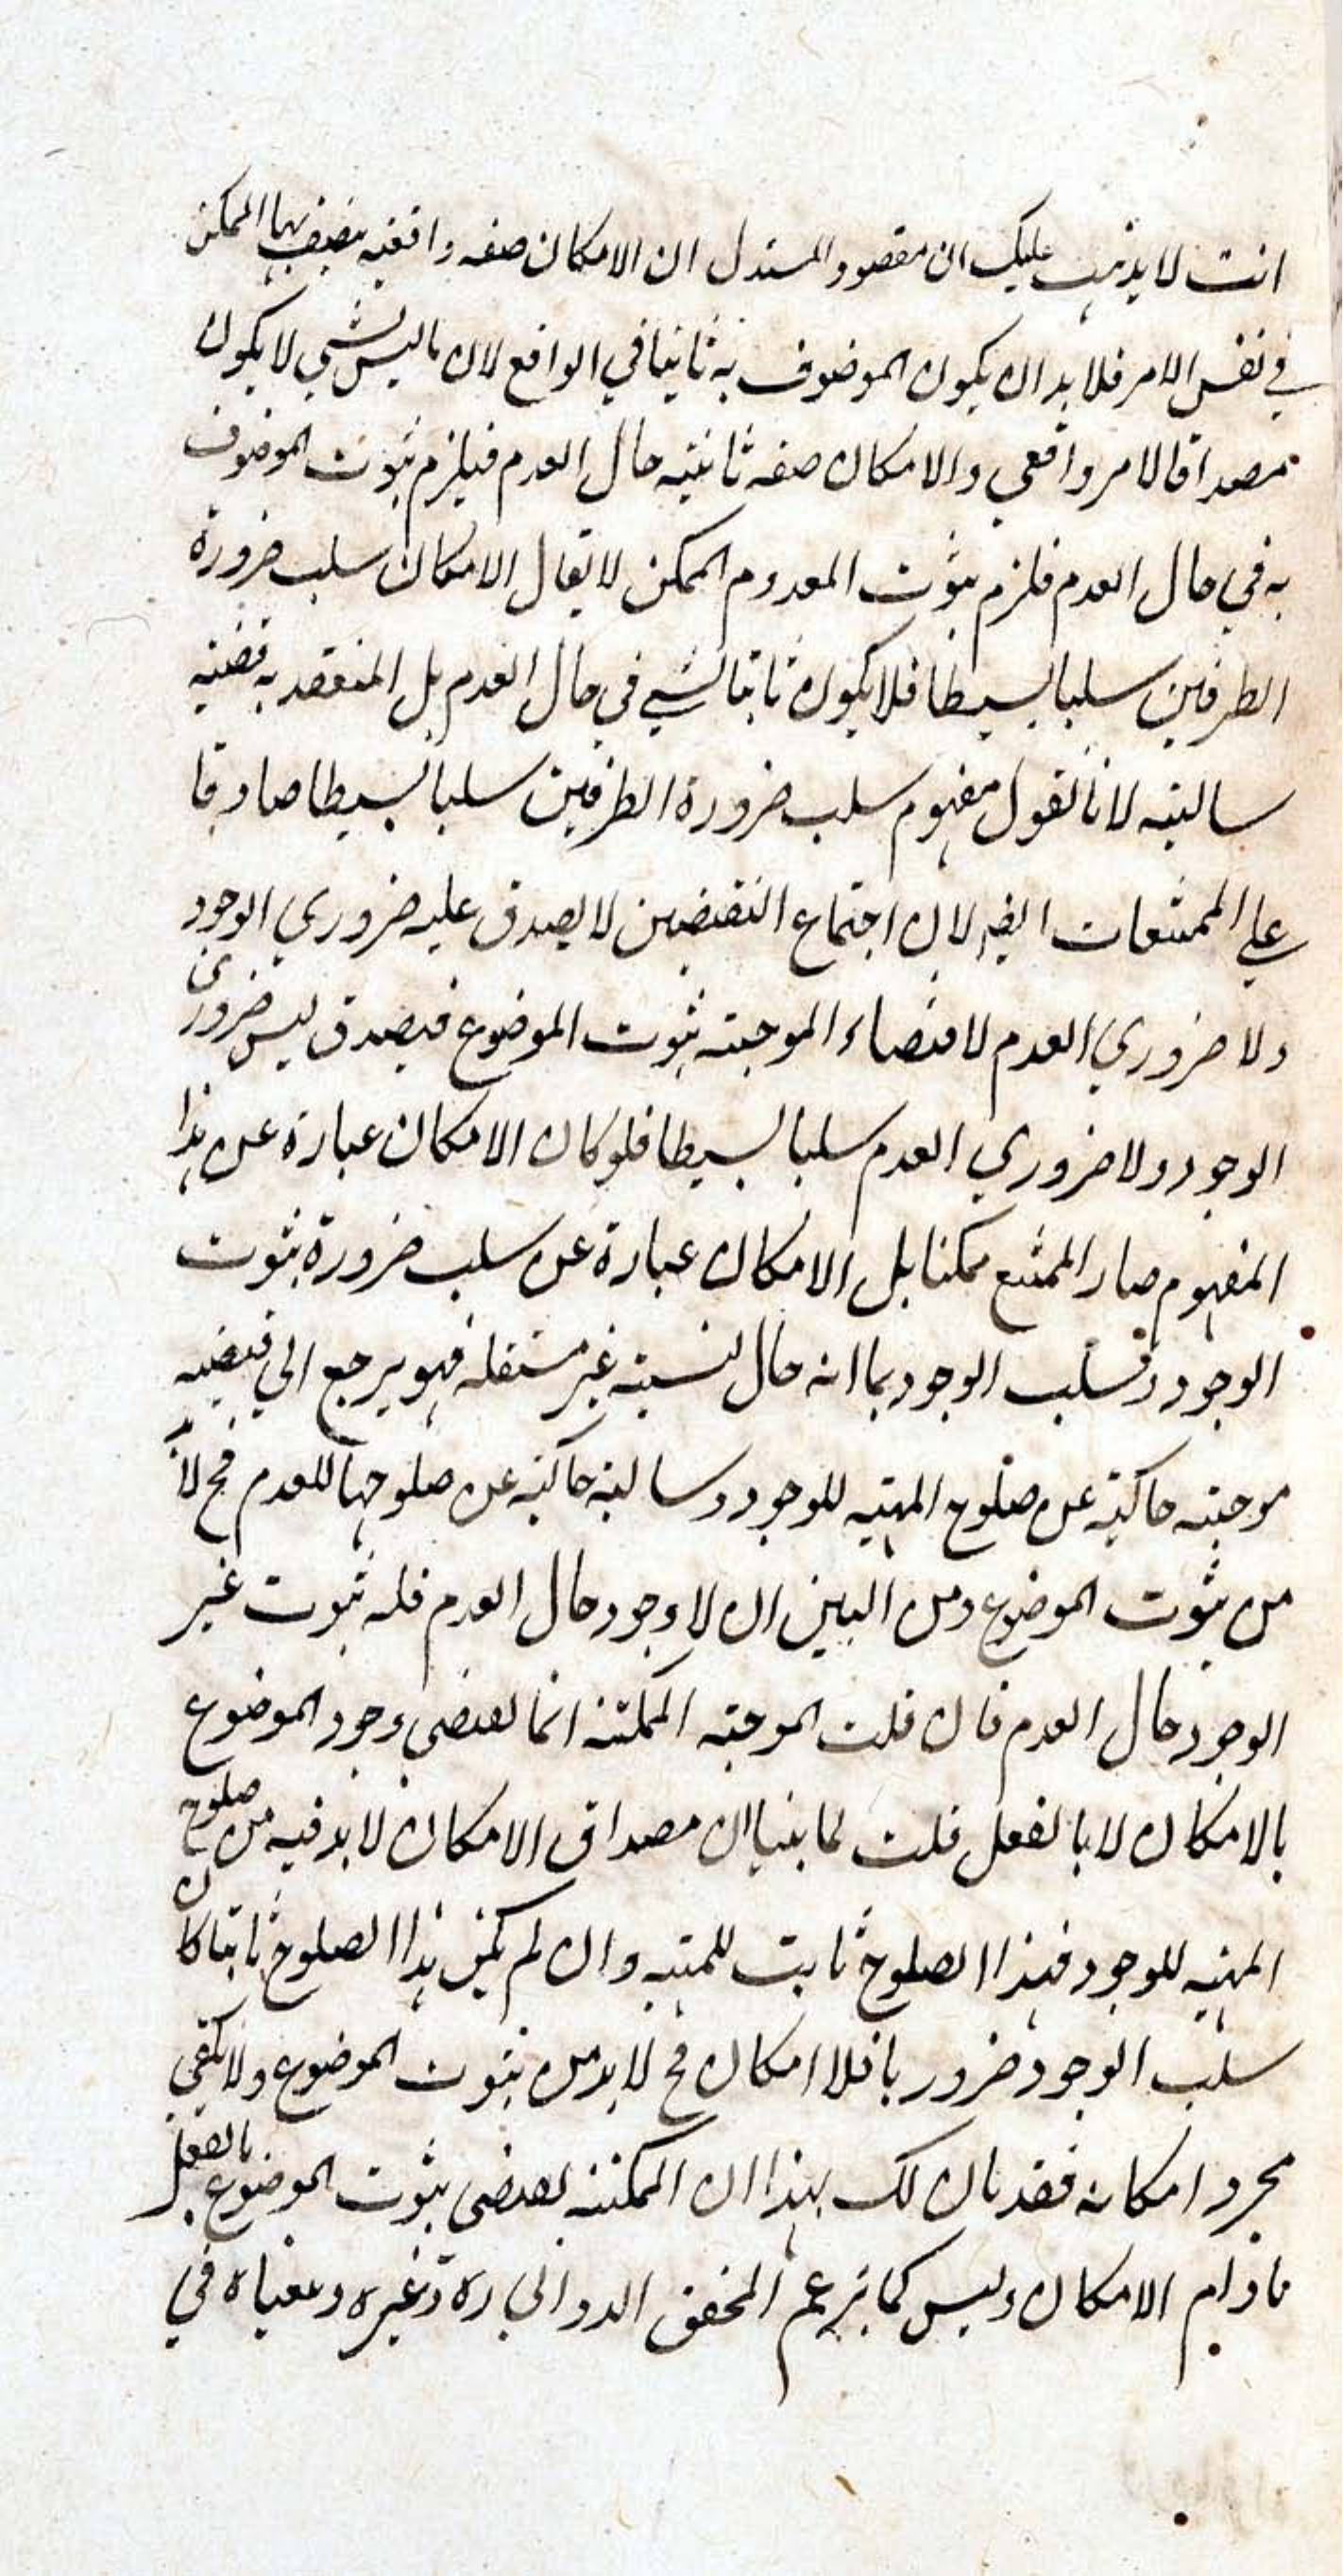 انت لا يذهب عليك ان مقصود المستدل ان الامكان صفه واقعيه يتصف بها الممكن
في نفس الامر فلا بد ان يكون الموصوف به ثابتا في الواقع لان ما ليس بشي لا يكون
مصداقا لامر واقعي والامكان صفه ثابتيه حال العدم فيلزم ثبوت الموصوف
به في حال العدم فلزم ثبوت المعدوم الممكن لا يقال الامكان سلب ضرورة
الطرفين سلبا بسيطا فلا يكون ثابتا لشي في حال العدم بل المنعقد به قضيه
سالبته لانا نقول مفهوم سلب ضرورة الطرفين سلبا بسيطا صادقا
علي الممتنعات ايضا لان اجتماع النقيضين لا يصدق عليه ضروري الوجود
ولا ضروري العدم لاقتضاء الموجبته ثبوت الموضوع فيصدق ليس ضروري
الوجود ولا ضروري العدم سلبا بسيطا فلو كان الامكان عبارة عن هذا
المفهوم صار الممتنع ممكنا بل الامكان عبارة عن سلب ضرورة ثبوت
الوجود وسلب الوجود بما انه حال لنسبته غير مستقله فهو يرجع الي قضيه
موجبته حاكيته عن صلوح المهيه للوجود وسالبته حاكيته عن صلوحها للعدم فح لا بد
من ثبوت الموضوع ومن البين ان لا وجود حال العدم فله ثبوت غير
الوجود حال العدم فان قلت الموجبه الممكنه انما تقتضي وجود الموضوع
بالامكان لا بالفعل قلت لما بينا ان مصداق الامكان لا بد فيه من صلوح
المهيه للوجود فهذا الصلوح ثابت للمهيه وان لم يكن هذا الصلوح ثابتا كان
سلب الوجود ضروريا فلا امكان فح لا بد من ثبوت الموضوع ولا يكفي
مجرد امكانه فقد بان لك بهذا ان الممكنه تقتضي ثبوت الموضوع بالفعل
مادام الامكان وليس كما يزعم المحقق الدواني ره وغيره ومعناه في